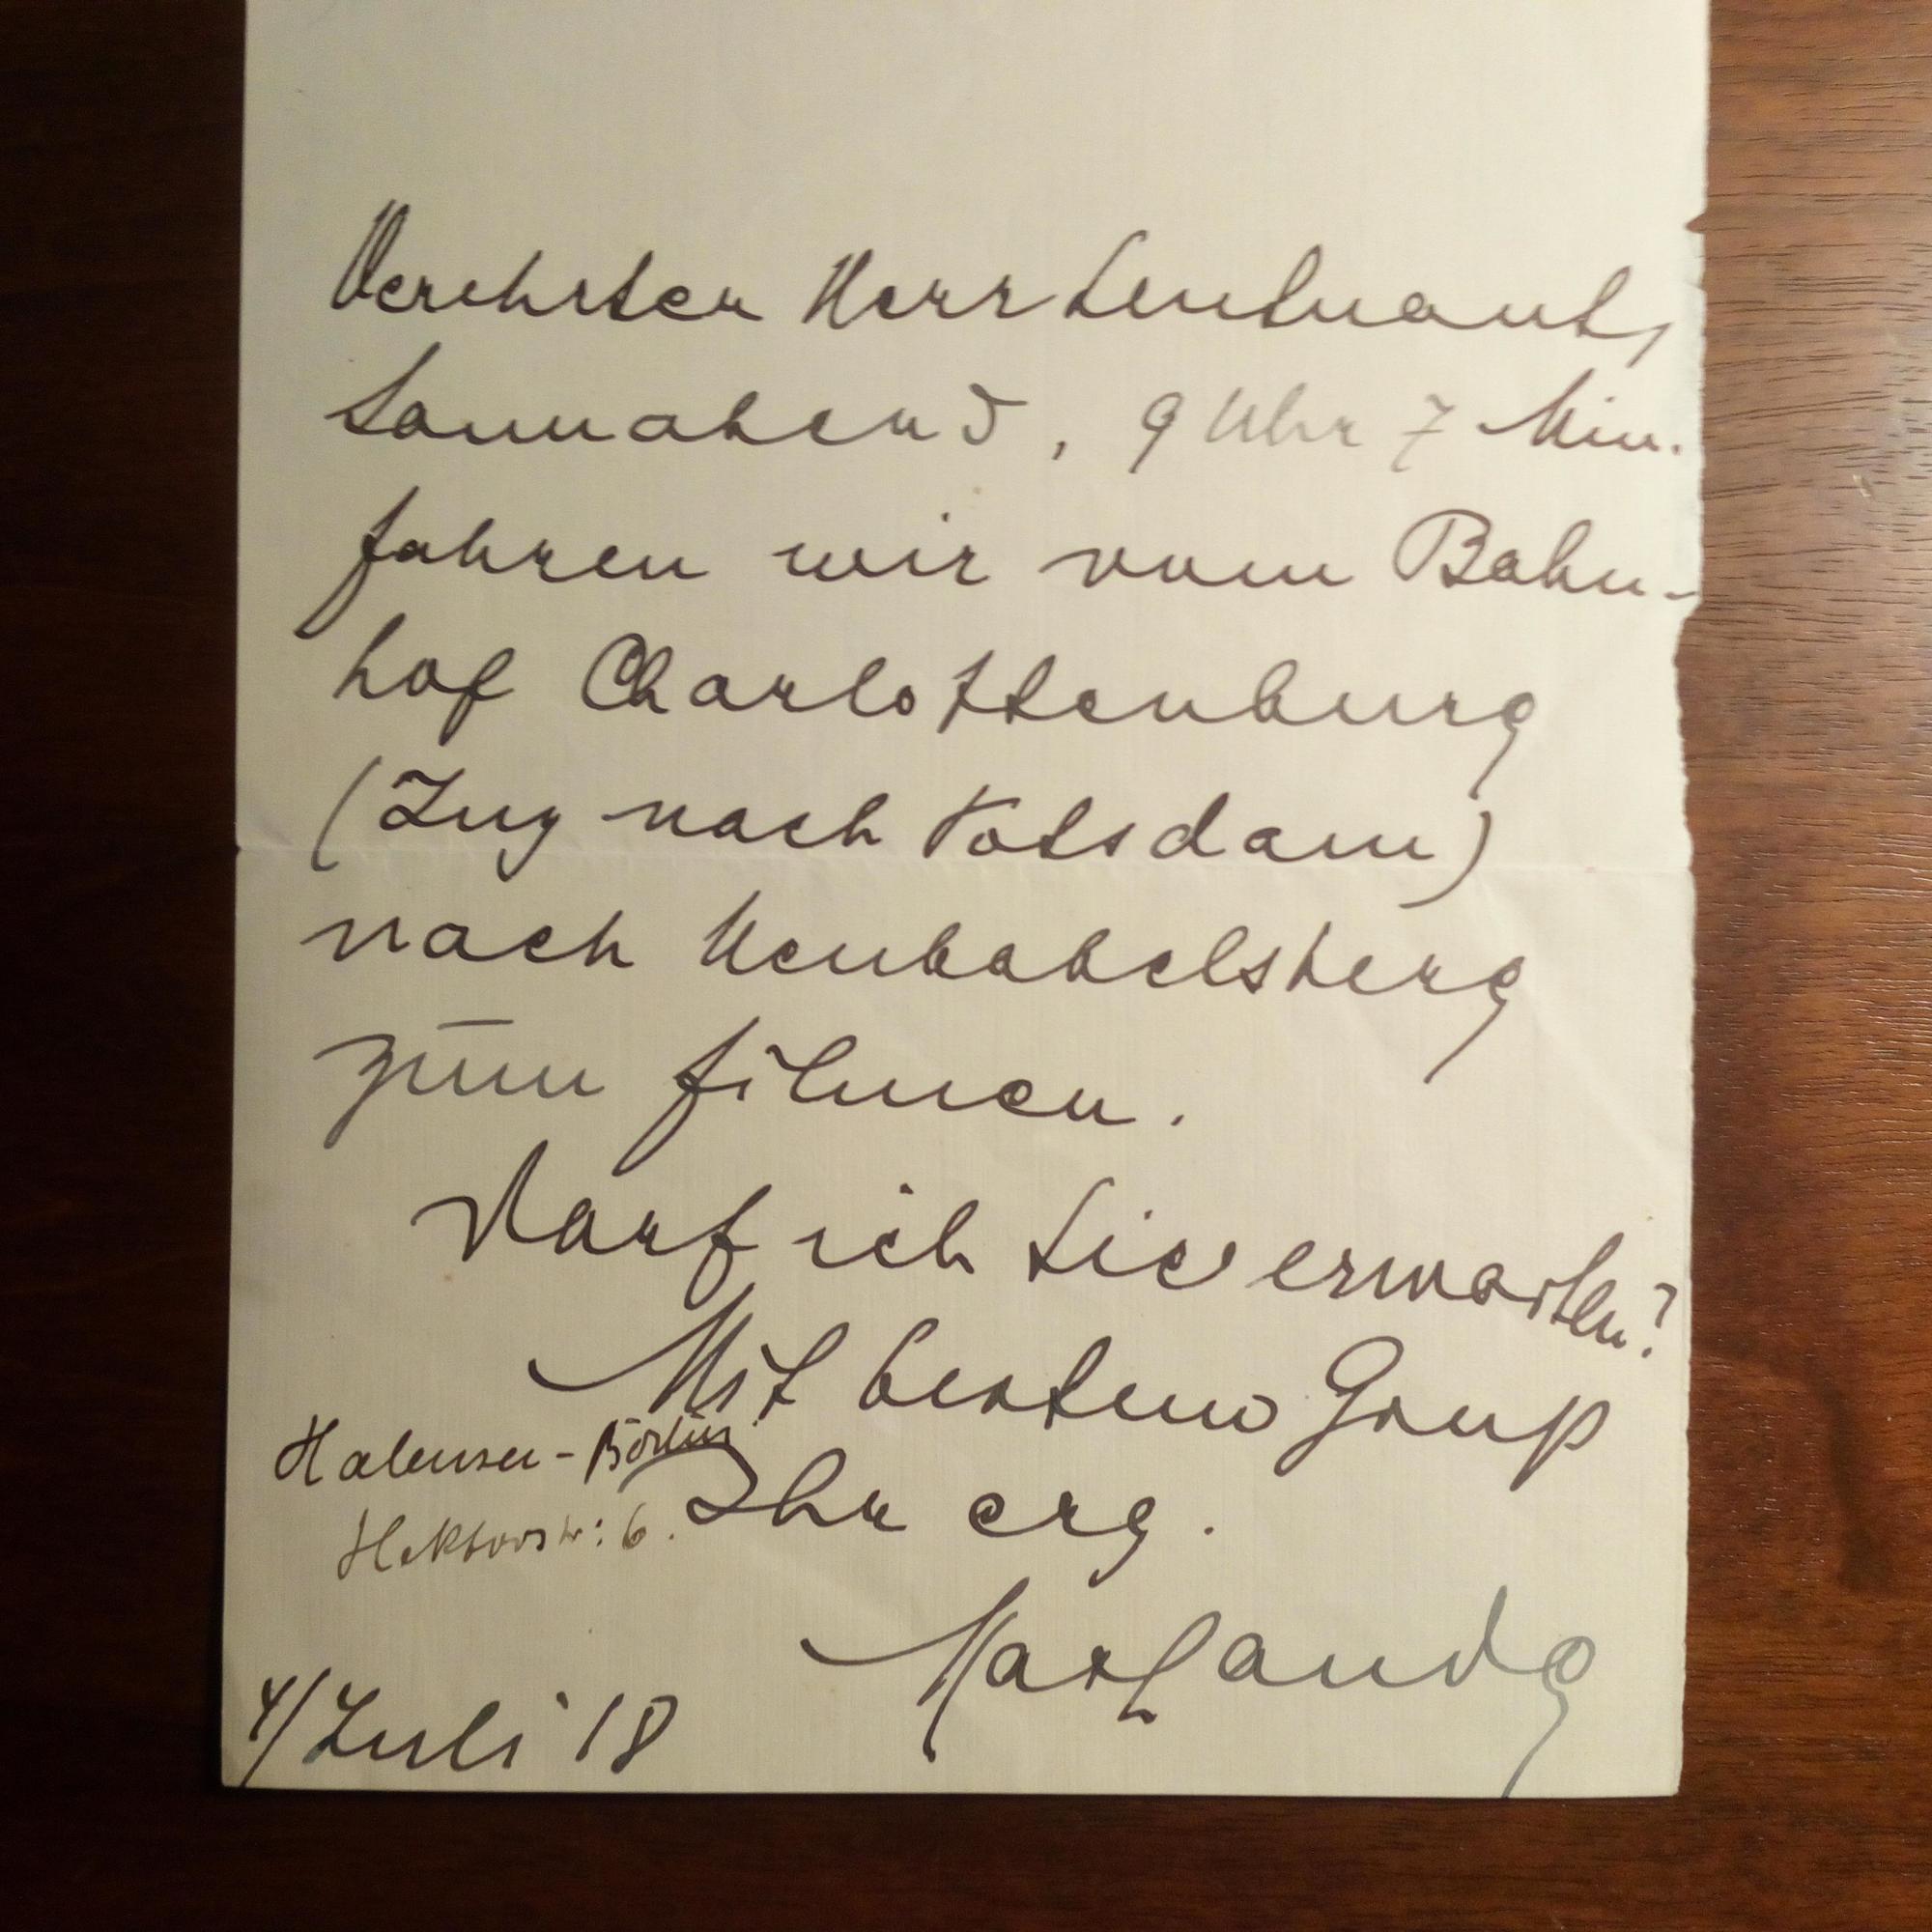 Verehrter Herr Leutnant,
Sonnabend, 9 Uhr 7 Min.
fahren wir vom Bahn-
hof Charlottenburg
(Zug nach Potsdam)
nach Neubabelsberg
zum filmen.
Darf ich Sie erwarten?
Mit bestem Gruß
Halensee-Berlin
Hektorstr: 6.
Ihr erg.
Max Landa
4/Juli 18